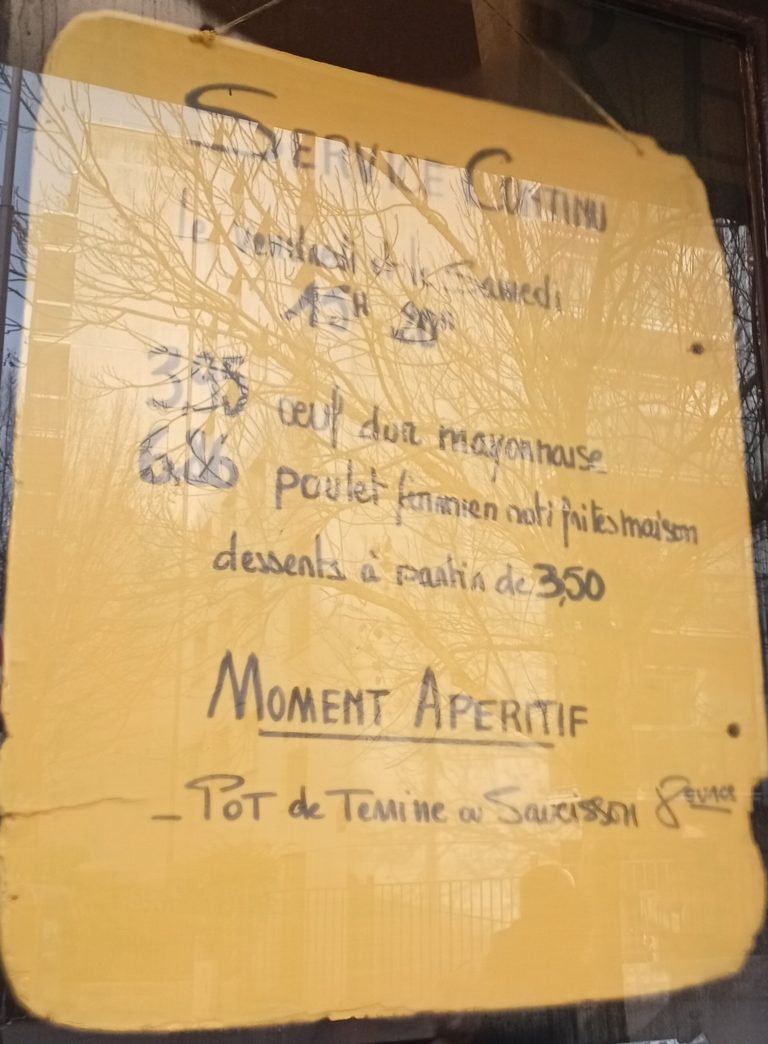 SERVICE CONTINU
le vendredi et le Samedi
15H
œuf dur mayonnaise
poulet fermier roti frites maison
desserts à partir de 3,50
MOMENT APERITIF
- POT de TERRINE ou SAUCISSON 8EUROS